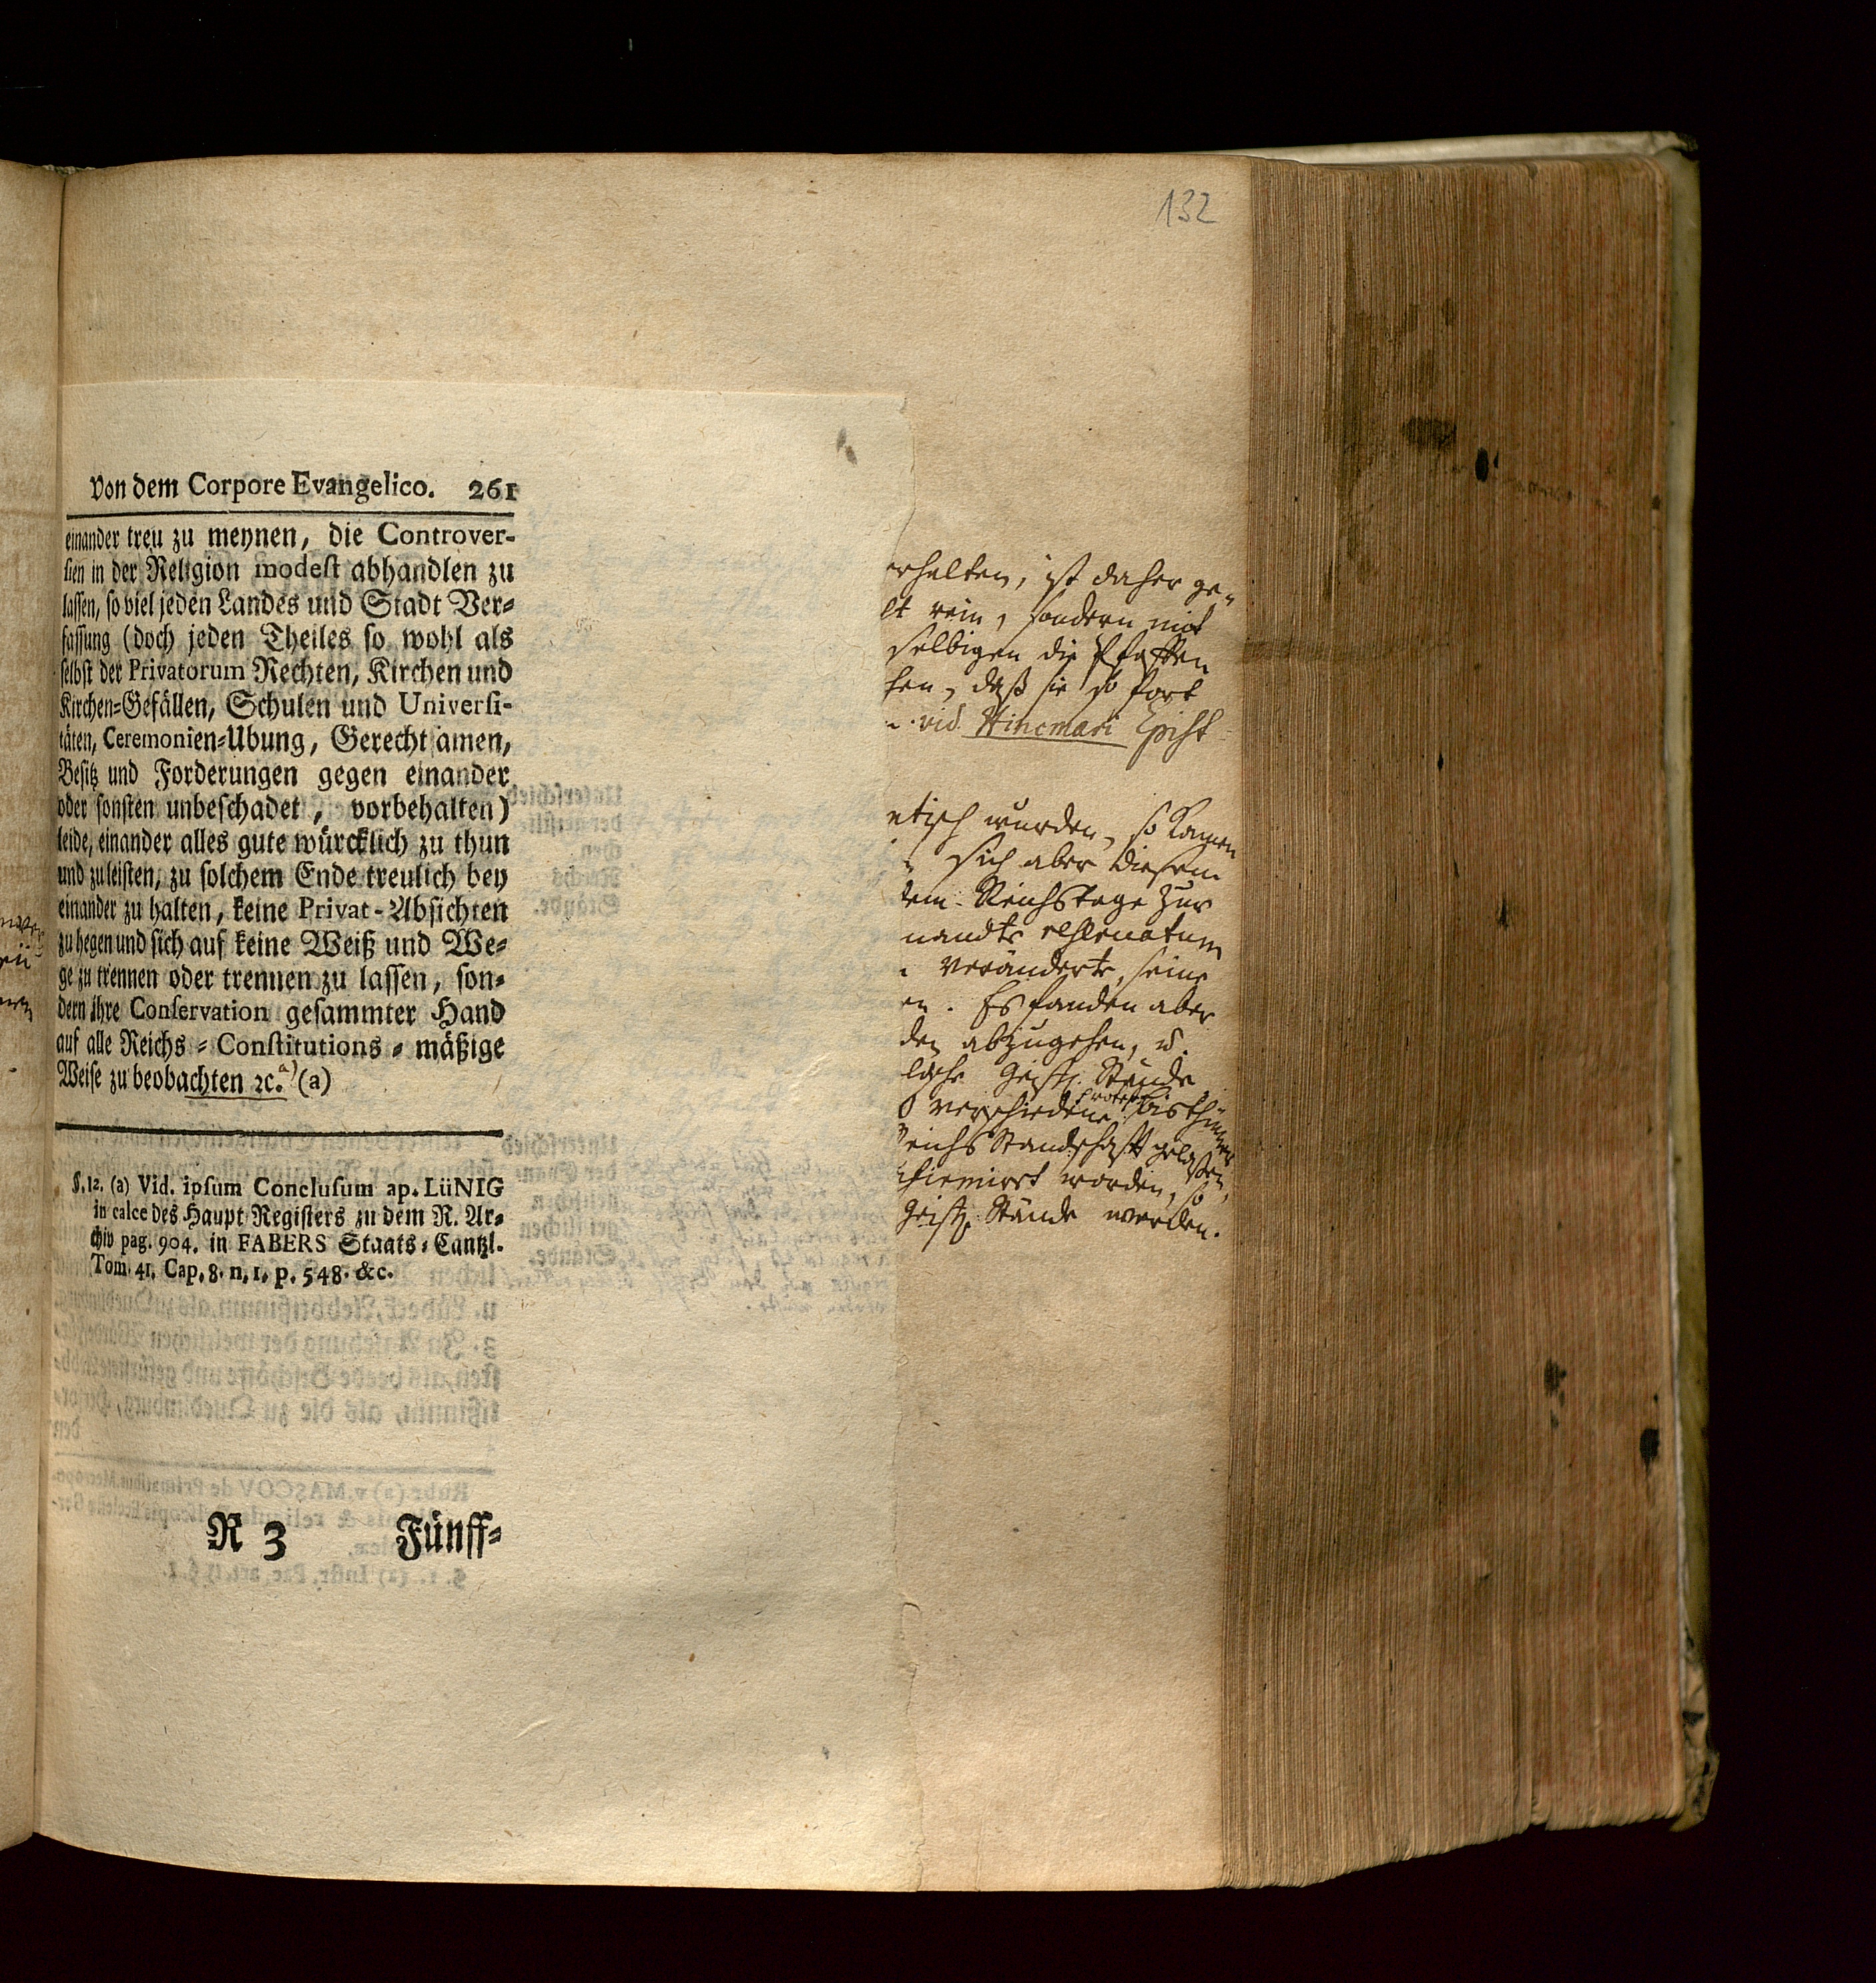 132
von dem Corpore Evangelico. 261
einander treu zu meynen, die Controver-
sien in der Religion modest abhandlen zu
lassen, so viel jeden Landes und Stadt Ver-
fassung (doch jeden Theiles so wohl als
selbst der Privatorum Rechten, Kirchen und
Kirchen-Gefällen, Schulen und Universi-
täten, Ceremonien-Ubung, Gerechtsamen,
Besitz und Forderungen gegen einander
oder sonsten unbeschadet, vorbehalten)
leide, einander alles gute würcklich zu thun
und zu leisten, zu solchem Ende treulich bey
einander zu halten, keine Privat-Absichten
zu hegen und sich auf keine Weiß und We-
ge zu trennen oder trennen zu lassen, son-
dern ihre Conservation gesammter Hand
auf alle Reichs-Constitutions-mäßige
Weise zu beobachten ꝛc. a) (a)
§. 12. (a) Vid. ipsum Conclusum ap. LüNIG
in calce des Haupt Registers zu dem R. Ar-
chiv pag. 904. in FABERS Staats-Cantzl.
Tom. 41. Cap. 8. n. 1. p. 548. &c.
R 3 Fünff-
rhalten, ist daher ge-
lt rein, sondern mit
selbigen die Pfaffen
hen, daß sie so fort
vid. Hincmari Epist
etisch wurden, so kamen
sich aber diesem
dem Reichstage zur
nandts
veränderte, seine
en. Es fanden aber
den abzugehen, u.
Geistl. Stände
verschiedene protest. Bisthümer
Reichs Standschafft gelassen,
worden, so
Geistl. Stände werden.